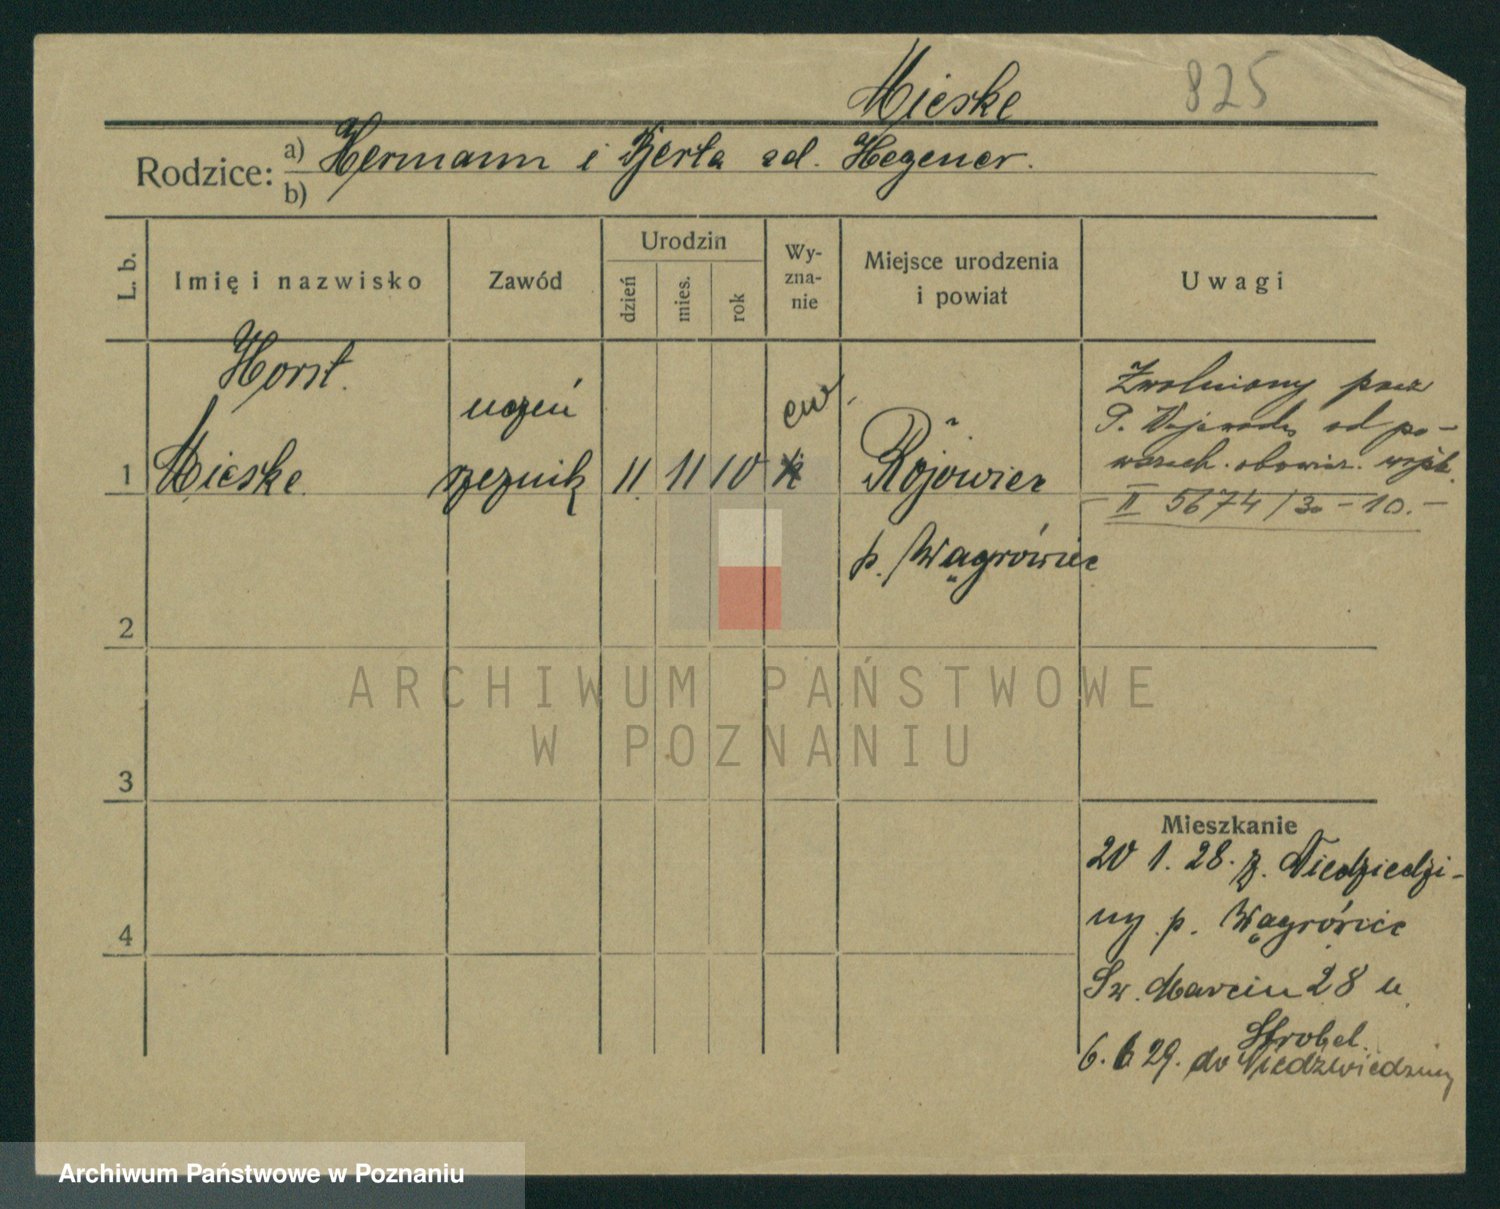 Mieske 825
Rodzice: a) Hermann i Berta zd. Hegener.
b)
L. b. Imię i nazwisko Zawód Urodzin dzień mies. rok Wy-zna-nie Miejsce urodzenia i powiat Uwagi
Horst.
uczeń
ew.
1 Mieske rzeźnik 11 11 10 k Rójowiec
p. Wągrówiec
Zwolniony przez
P. Wojewodę od po-
wszech. obowiąz. wojsk.
II 5674/30 - 10.-
2
ARCHIWUM PAŃSTWOWE
W POZNANIU
3
4
Mieszkanie
20 1. 28. z. Niedziedzi-
ny p. Wągrówiec
Św. Marcin 28 u
Strobel.
6. 6 29. do Niedzwiedziny
Archiwum Państwowe w Poznaniu